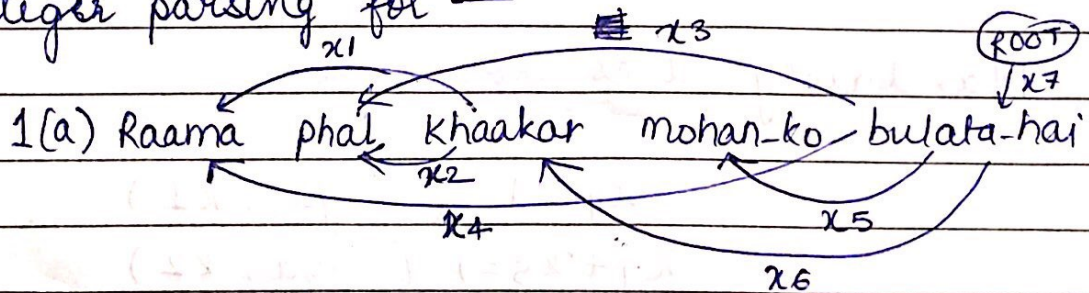 parsing for
x1 x3 ROOT
x7
1(a) Raama phal khaakar mohan-ko bulata-hai
x2
x4 x5
x6